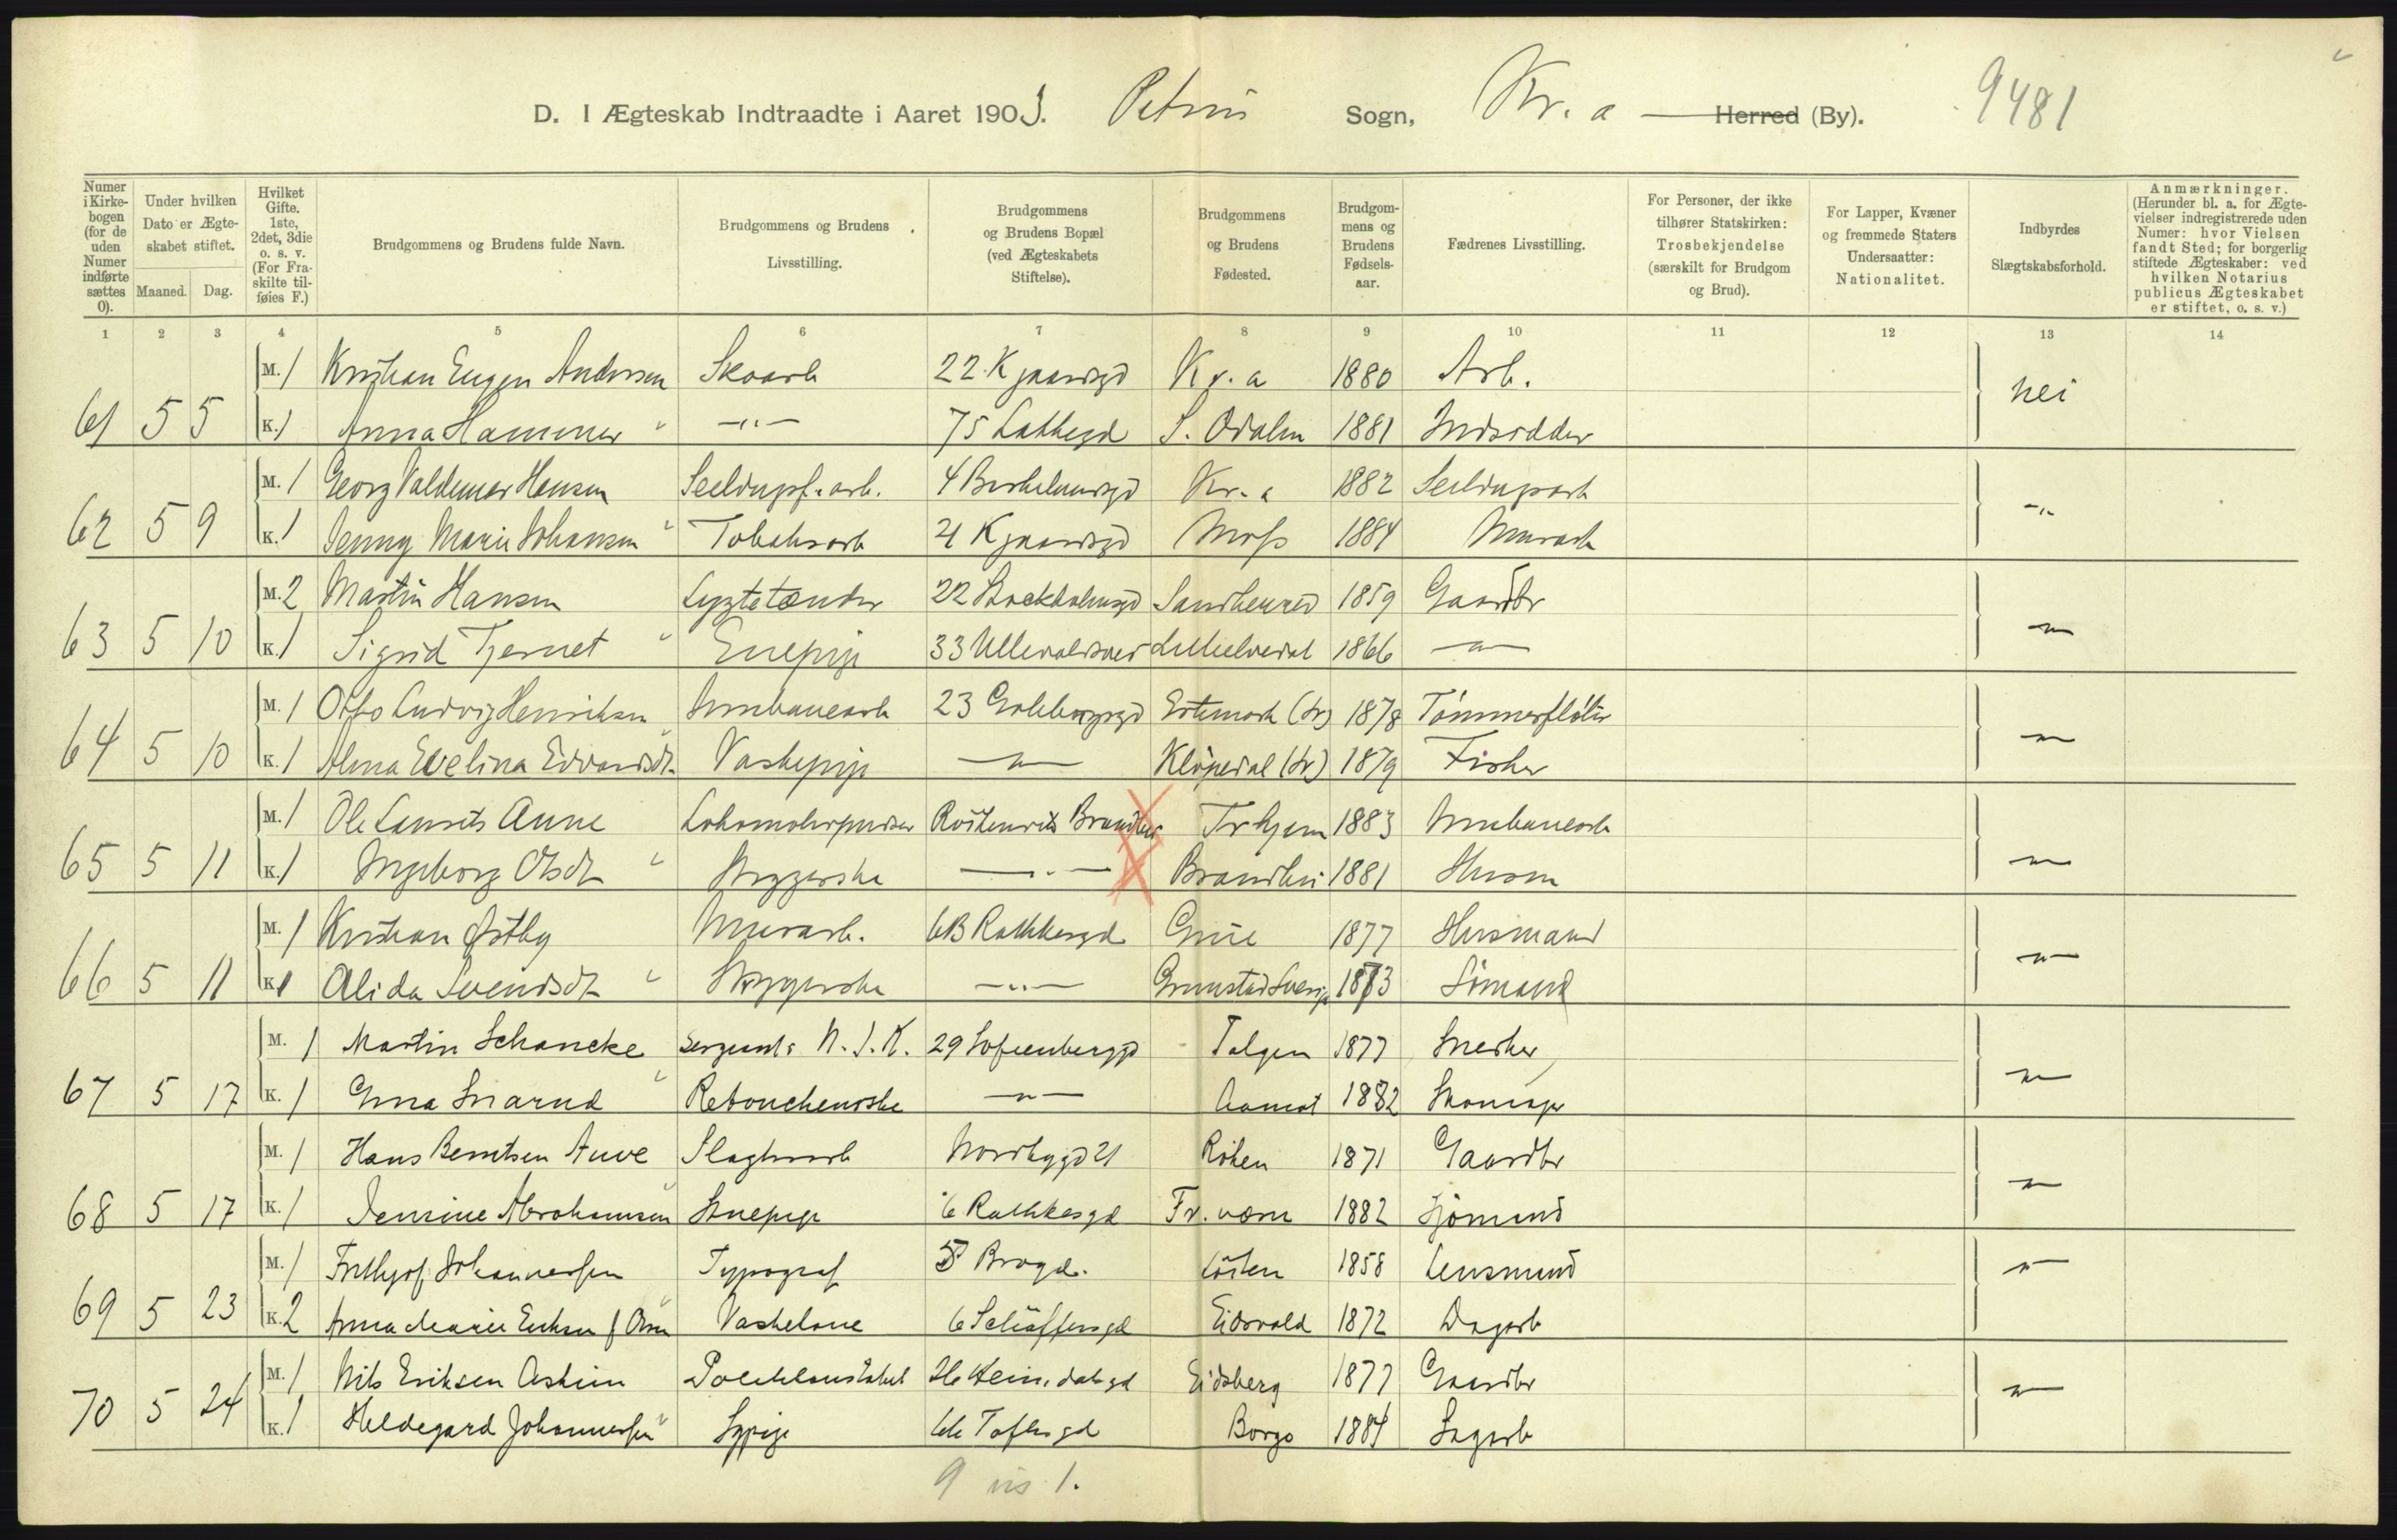 D. I Ægteskab Indtraadte i Aaret 1903. Petrus Sogn, Kr.a — Herred (By). 9481
Numer i Kirkebogen (for de uden Numer indførte sættes 0).
Under hvilken Dato er Ægteskabet stiftet.
Maaned. Dag.
Hvilket Gifte. 1ste, 2det, 3die o. s. v. (For Fraskilte tilføies F.)
Brudgommens og Brudens fulde Navn.
Brudgommens og Brudens Livsstilling.
Brudgommens og Brudens Bopæl (ved Ægteskabets Stiftelse).
Brudgommens og Brudens Fødested.
Brudgommens og Brudens Fødselsaar.
Fædrenes Livsstilling.
For Personer, der ikke tilhører Statskirken: Trosbekjendelse (særskilt for Brudgom og Brud).
For Lapper, Kvæner og fremmede Staters Undersaatter: Nationalitet.
Indbyrdes Slægtskabsforhold.
Anmærkninger. (Herunder bl. a. for Ægtevielser indregistrerede uden Numer: hvor Vielsen fandt Sted; for borgerlig stiftede Ægteskaber: ved hvilken Notarius publicus Ægteskabet er stiftet, o. s. v.)
1 2 3 4 5 6 7 8 9 10 11 12 13 14
M. 1 Kristian Eugen Andersen Skoarb 22 Kr.a 1880 Arb. nei
61 5 5 K. 1 Anna Hammer -"- 75 S. Odalen 1881 Indsidder
M. 1 Georg Valdemar Hansen 4 Kr.a 1882 -"-
62 5 9 K. 1 Jenny Marie Johansen Tobaksarb 21 Moss 1884 Murarb
M. 2 Martin Hansen Lygtetænder 22 Stockholmsgd Sandherred 1859 Gaardbr -"-
63 5 10 K. 1 Sigrid Tjernet 33 Ullevoldsvei 1866 -"-
M. 1 Otto Ludvig Henriksen 23 Gøteborggd (Sv) 1878 Tømmerfløter -"-
64 5 10 K. 1 Alma Evelina Edvardsdt. Vaskepige -"- Klöpedal (Sv) 1879 Fisker
M. 1 Ole Lauritz Aune Lokomotivpudser Brandbu Trhjem 1883 -"-
65 5 11 K. 1 Ingeborg Olsdt Bryggerske -"- Brandbu 1881 Husm
M. 1 Kristian Østby Murarb. 6B Rathkesgd Grue 1877 Husmand -"-
66 5 11 K. 1 Alida Svendsdt Bryggerske -"- Sverige 1873 Sømand
M. 1 Martin Schancke Sergeant N.J.K. 29 Sofienberggd Tolgen 1877 Snedker -"-
67 5 17 K. 1 Retoucheuse -"- Aamot 1882 Skomager
M. 1 Hans Berntsen Auve Slagterarb Nordbygd 21 Röken 1871 Gaardbr -"-
68 5 17 K. 1 Jensine Abrahamsen Stuepige 6 Rathkesgd Fr. værn 1882 Sjömand
M. 1 Frithjof Johannessen Typograf Løiten 1858 Lensmand -"-
69 5 23 K. 2 Anna Marie Eriksen f. Vaskekone 6 Schäffersgd Eidsvold 1872 Dagarb
M. 1 Nils Eriksen Askim Politikonstabel 26 Heimdalsgd Eidsberg 1877 Gaardbr -"-
70 5 24 K. 1 Hildegard Johannessen Sypige Toftesgd Borge 1884 Sagarb
9 1.